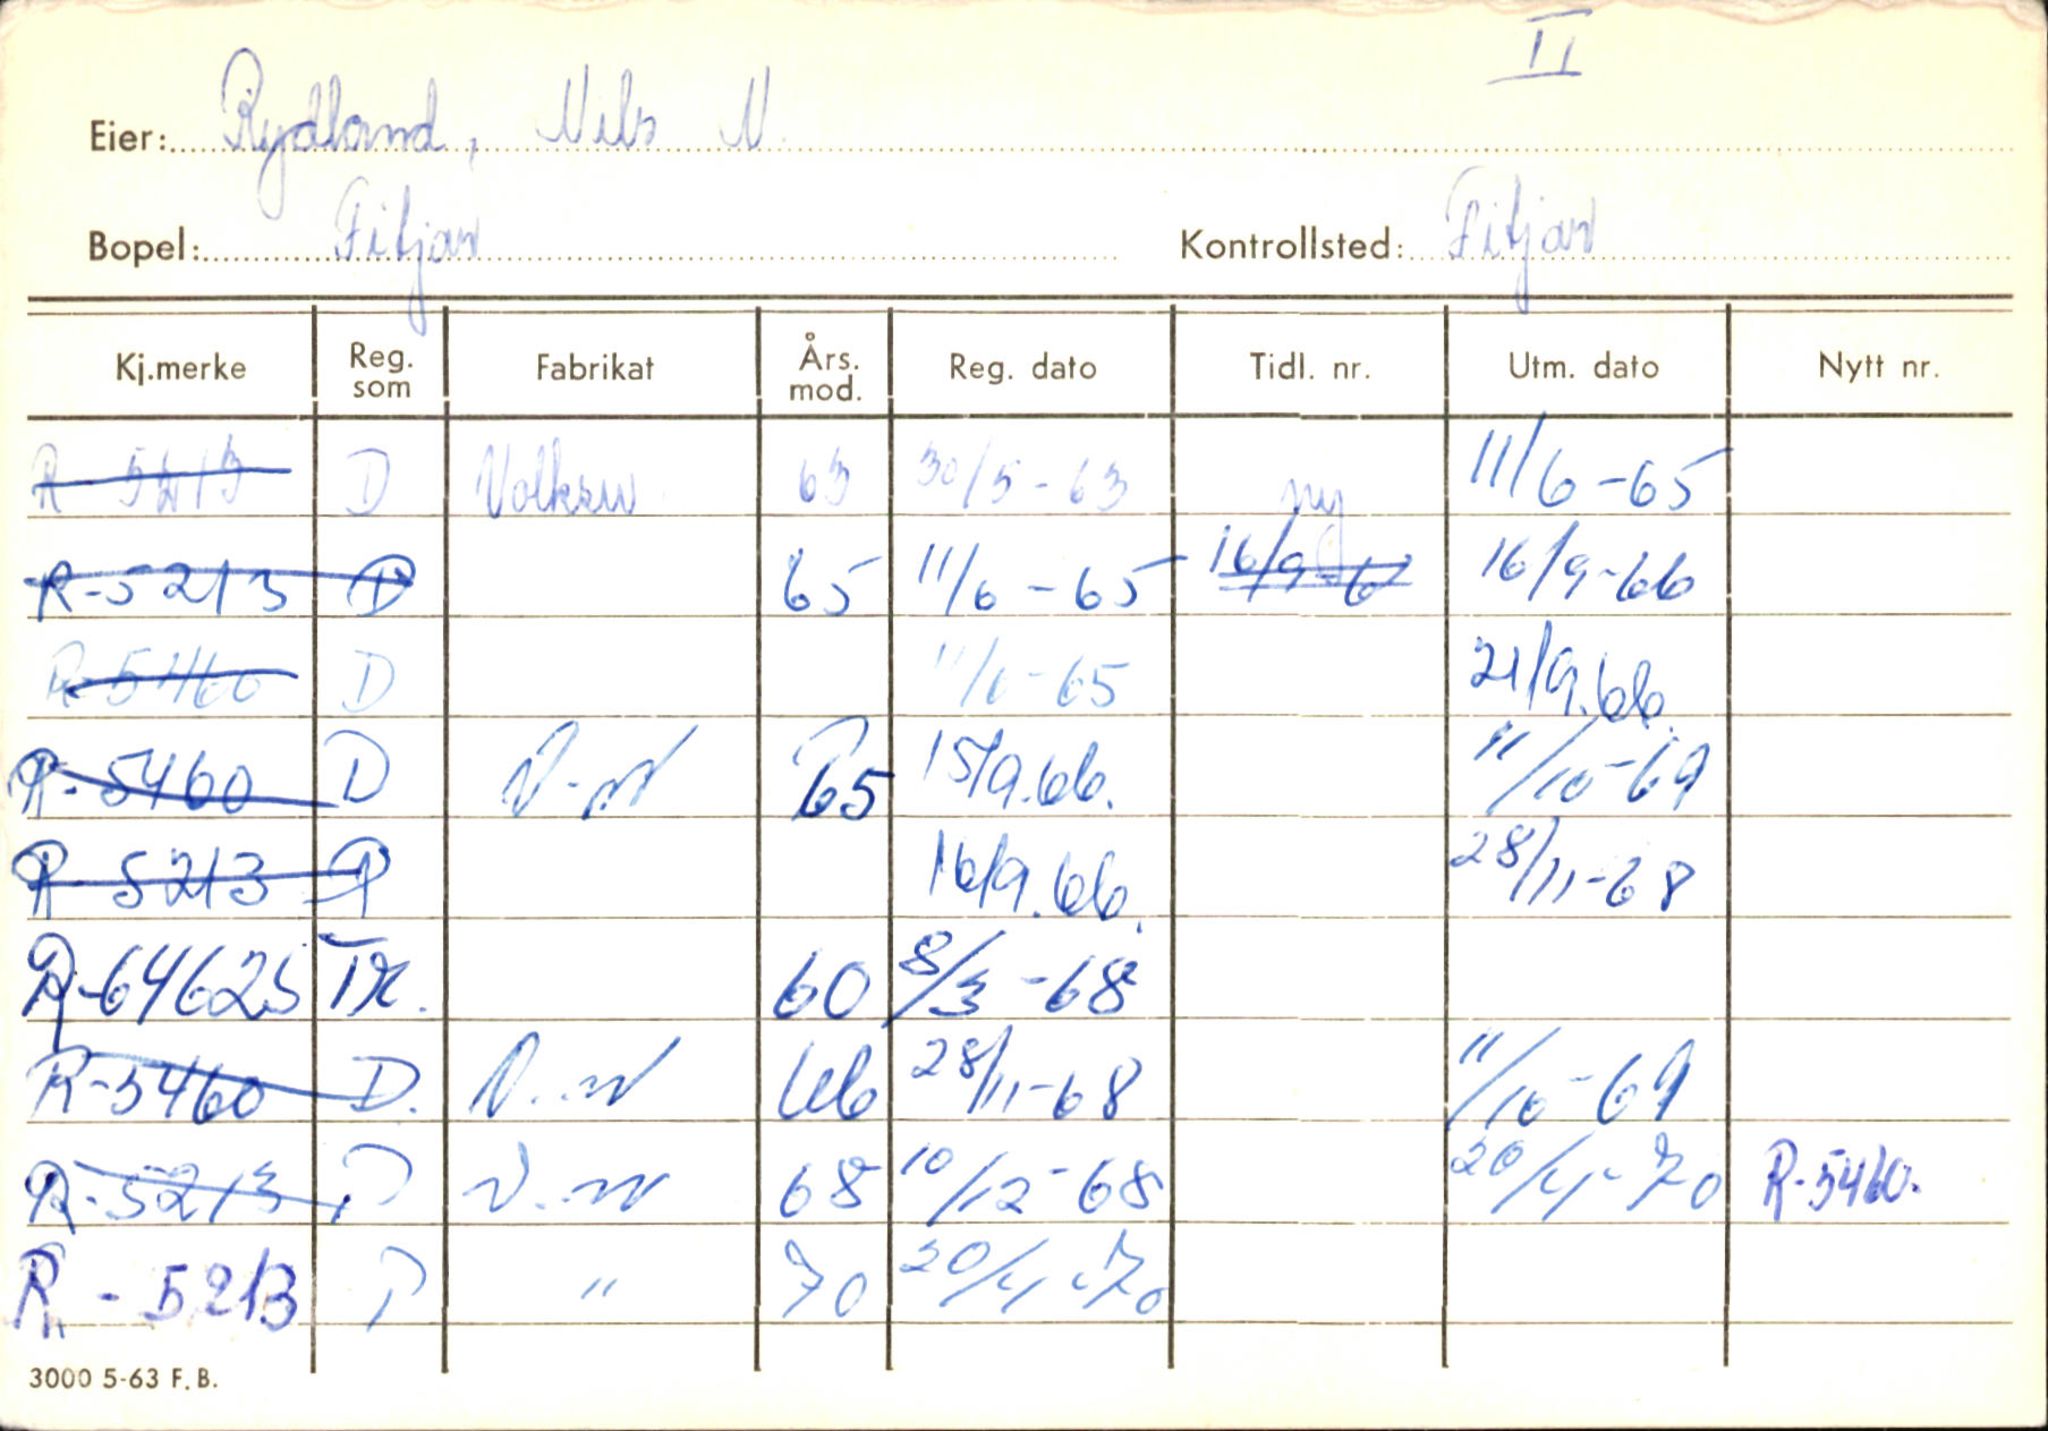 II
Eier: Rydland, Nils N.
Bopel: Fitjar Kontrollsted: Fitjar
Kj.merke Reg. som Fabrikat Års. mod. Reg. dato Tidl. nr. Utm. dato Nytt nr.
R 5213 D Volksw 63 30/5-63 ny 11/6-65
R-5213 D 65 11/6-65 16/9-6 16/9-66
R-5460 D 11/6-65 21/9.66.
R-5460 D V-W 65 15/9.66. 11/10-69
R 5213 P 16/9.66. 28/11-68
R-64625 TK. 60 8/3-68
R-5460 D. V.W 66 28/11-68 11/10-69
R-5213 D V.W 68 10/12-68 20/4-70 R-5460.
R-5213 P " 70 20/4-70
3000 5-63 F.B.